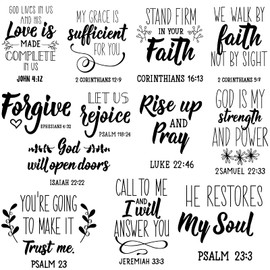 GOD LIVES IN US
AND HIS
Love is
MADE
COMPLETE
IN US
JOHN 4:12
MY GRACE IS
sufficient
FOR YOU
2 CORINTHIANS 12:9
STAND FIRM
IN YOUR
Faith
CORINTHIANS 16:13
WE WALK BY
faith
NOT BY SIGHT
2 CORINTHIANS 5:7
Forgive
EPHESIANS 4:32
LET US
rejoice
PSALM 118:24
God
will open doors
ISAIAH 22:22
Rise up
AND
Pray
LUKE 22:46
GOD IS MY
STRENGTH
AND POWER
2 SAMUEL 22:33
YOU'RE GOING
TO MAKE IT
Trust me.
PSALM 23
CALL TO ME
AND I
will
ANSWER YOU
JEREMIAH 33:3
HE RESTORES
My Soul
PSALM 23:3